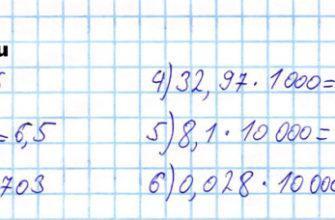 4) 32,97 · 1000 =
=6,5
5) 8,1 · 10 000 =
703
6) 0,028 · 10 000